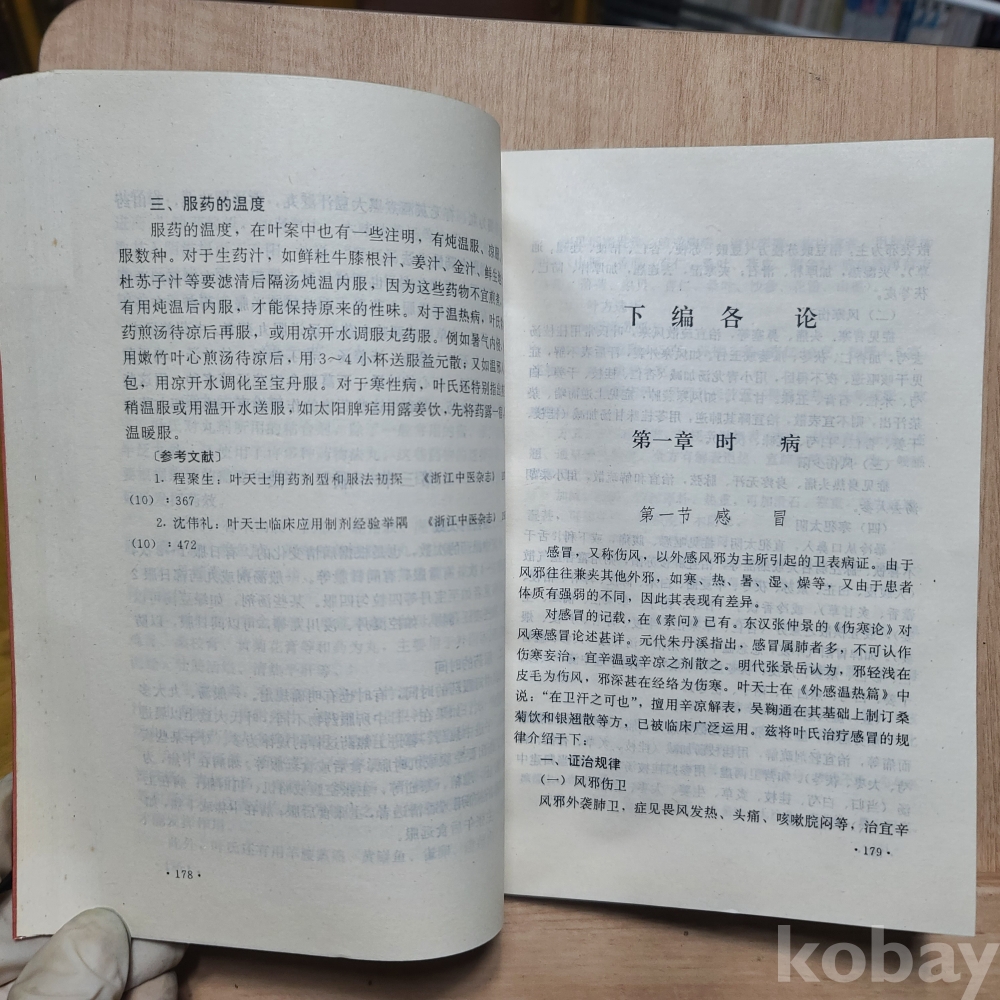 三、服药的温度
服药的温度，在叶案中也有一些注明，有炖温服、凉服
服数种。对于生药汁，如鲜杜牛膝根汁、姜汁、金汁、鲜生地
杜苏子汁等要滤清后隔汤炖温内服，因为这些药物不宜煎煮
有用炖温后内服，才能保持原来的性味。对于温热病，叶氏
药煎汤待凉后再服，或用凉开水调服丸药服。例如暑气内侵
用嫩竹叶心煎汤待凉后，用3～4小杯送服益元散；又如温邪
包，用凉开水调化至宝丹服。对于寒性病，叶氏还特别指出
稍温服或用温开水送服，如太阳脾疟用露姜饮，先将药露一宿
温暖服。
〔参考文献〕
1. 程聚生：叶天士用药剂型和服法初探 《浙江中医杂志》
(10)：367
2. 沈伟礼：叶天士临床应用制剂经验举隅 《浙江中医杂志》
(10)：472
·178·
下编各 论
第一章时 病
第一节 感 冒
感冒，又称伤风，以外感风邪为主所引起的卫表病证。由于
风邪往往兼夹其他外邪，如寒、热、暑、湿、燥等，又由于患者
体质有强弱的不同，因此其表现有差异。
对感冒的记载，在《素问》已有。东汉张仲景的《伤寒论》对
风寒感冒论述甚详。元代朱丹溪指出：感冒属肺者多，不可认作
伤寒妄治，宜辛温或辛凉之剂散之。明代张景岳认为，邪轻浅在
皮毛为伤风，邪深甚在经络为伤寒。叶天士在《外感温热篇》中
说：“在卫汗之可也”，擅用辛凉解表，吴鞠通在其基础上制订桑
菊饮和银翘散等方，已被临床广泛运用。兹将叶氏治疗感冒的规
律介绍于下：
一、证治规律
（一）风邪伤卫
风邪外袭肺卫，症见畏风发热、头痛、咳嗽脘闷等，治宜辛
·179·
kobay